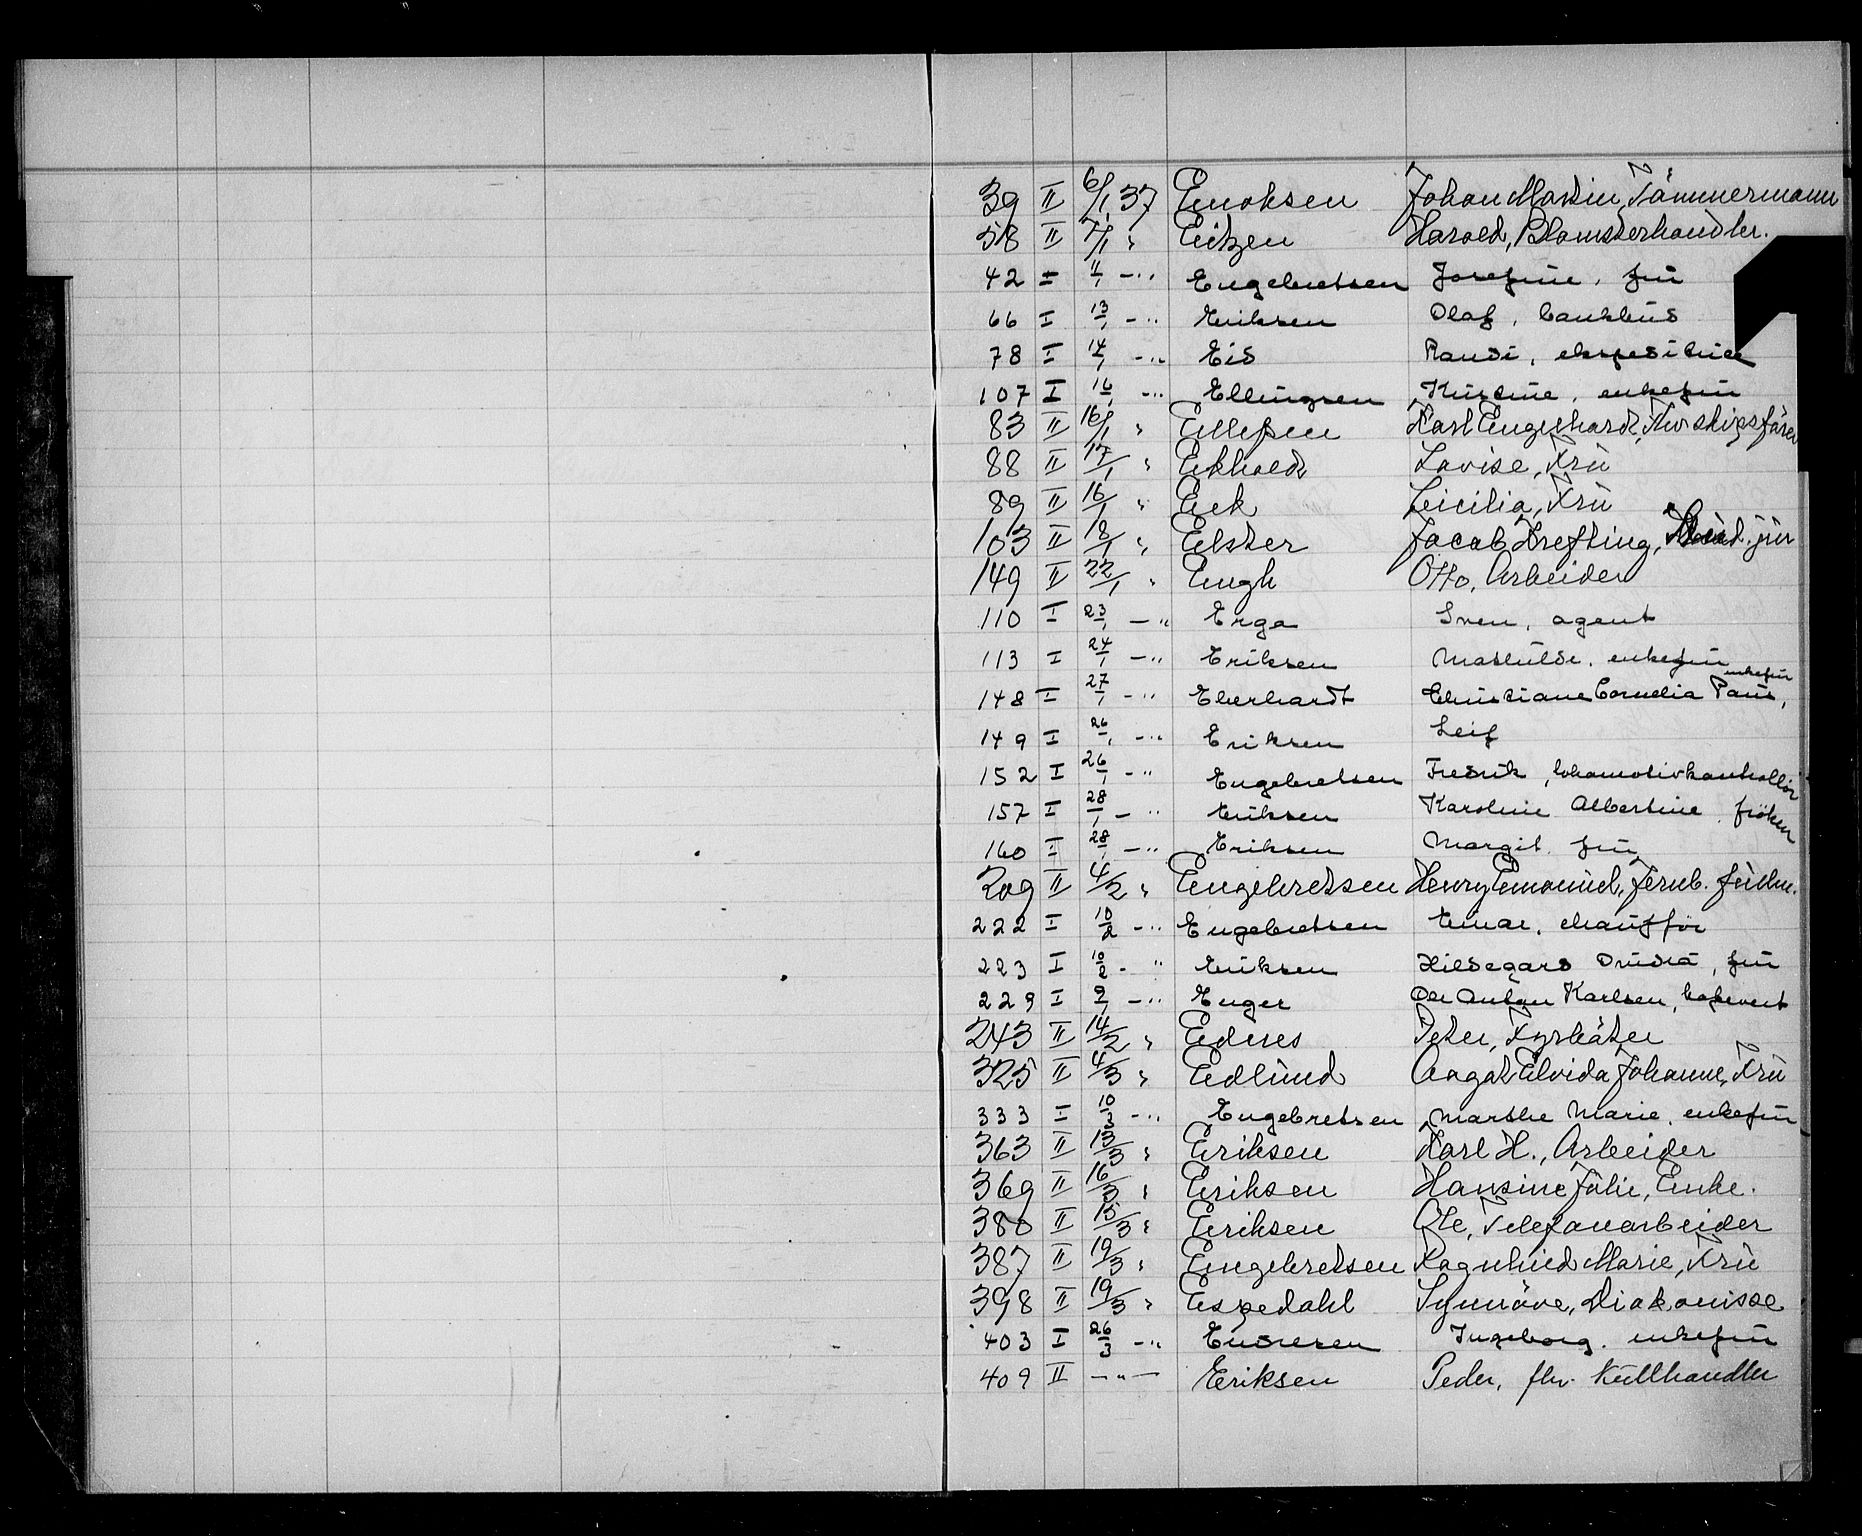 39 II 6/1 37 Enoksen Johan Martin, Tömmermann
58 II 7/1 " Eitzen Harald, Blomsterhandler.
42 I 11/1 -"- Engebretsen Josefine, frù
66 I 13/1 -"- Eriksen Olaf, bankbùd
78 I 14/1 -"- Eid Randi, ekspeditrice
107 I 16/1 -"- Ellingsen Kirstine, enkefrù
83 II 16/1 " Ellefsen Karl Engelhardt, Fhv skipsförer
88 II 17/1 " Ekholdt Lovise, Frù
89 II 16/1 " Eek Cicilia, Frù
103 II 18/1 " Elster Jacob Krefting, Stùd. jùr
149 II 22/1 " Engh Otto, Arbeider
110 I 23/1 -"- Erga Sven, agent
113 I 24/1 -"- Eriksen Mathilde, enkefrù
148 I 27/1 -"- Eberhardt Christiane Cornelia Paùs, enkefrù
149 I 26/1 -"- Eriksen Leif
152 I 26/1 -"- Engebretsen Fredrik, lokomotivkontrollör
157 I 28/1 -"- Eriksen Karoline Albertine, fröken
160 I 28/1 -"- Eriksen Margit, frù
209 II 4/2 " Engebretsen Henry Emanùel, Jernb. fùllm.
222 I 10/2 -"- Engebretsen Einar, chaufför
223 I 10/2 -"- Eriksen Hildegard, frù
229 I 9/1 -"- Enger Ole Anton Karlsen,
243 II 14/2 " Ednes Peter, Fyrböter
325 II 4/3 " Edlùnd Aagot Elvida Johanne, Frù
333 I 10/3 -"- Engebretsen Marthe Marie, enkefrù
363 II 13/3 " Eriksen Karl H., Arbeider
369 II 16/3 " Eriksen Hansine Jùlie, Enke.
380 II 15/3 " Eriksen Ole, Telefonarbeider
387 II 19/3 " Engebretsen Ragnhild Marie, Frù
398 II 19/3 " Espedahl Synnöve, Diakonisse
403 I 26/3 -"- Endresen Ingeborg, enkefrù
409 II -"- Eriksen Peder, fhv. Kùllhandler